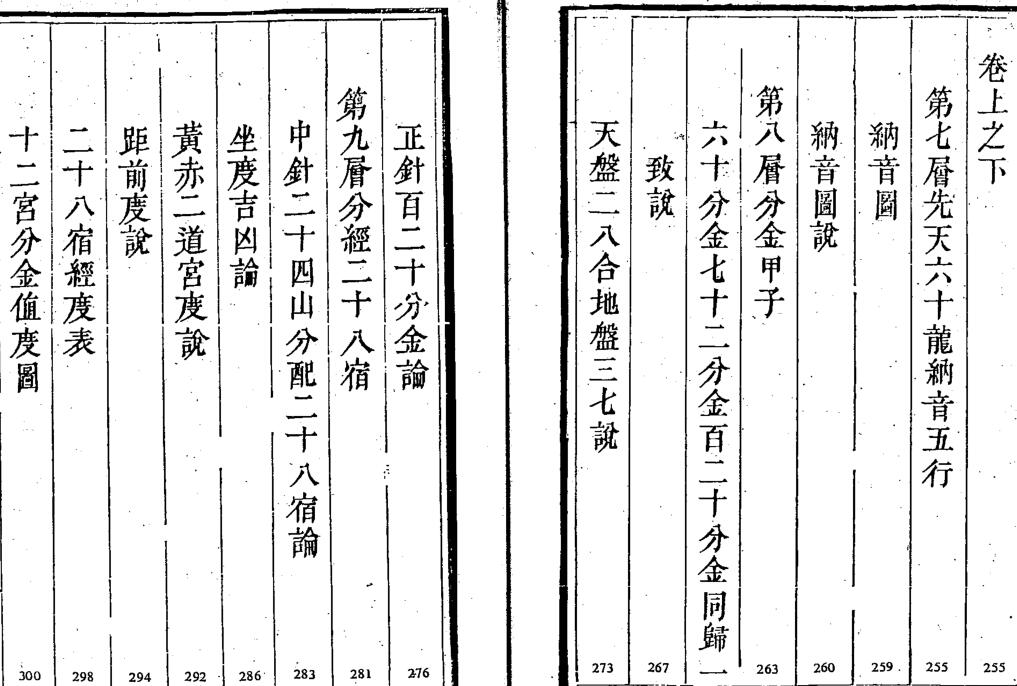 卷上之下 255
第七層先天六十龍納音五行 255
納音圖 259
納音圖說 260
第八層分金甲子 263
六十分金七十二分金百二十分金同歸一
致說 267
天盤二八合地盤三七說 273
正針百二十分金論 276
第九層分經二十八宿 281
中針二十四山分配二十八宿論 283
坐度吉凶論 286
黃赤二道宮度說 292
距前度說 294
二十八宿經度表 298
十二宮分金值度圖 300